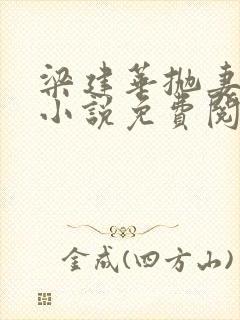 梁建華抛妻
小說免費閱
金成(四方山)